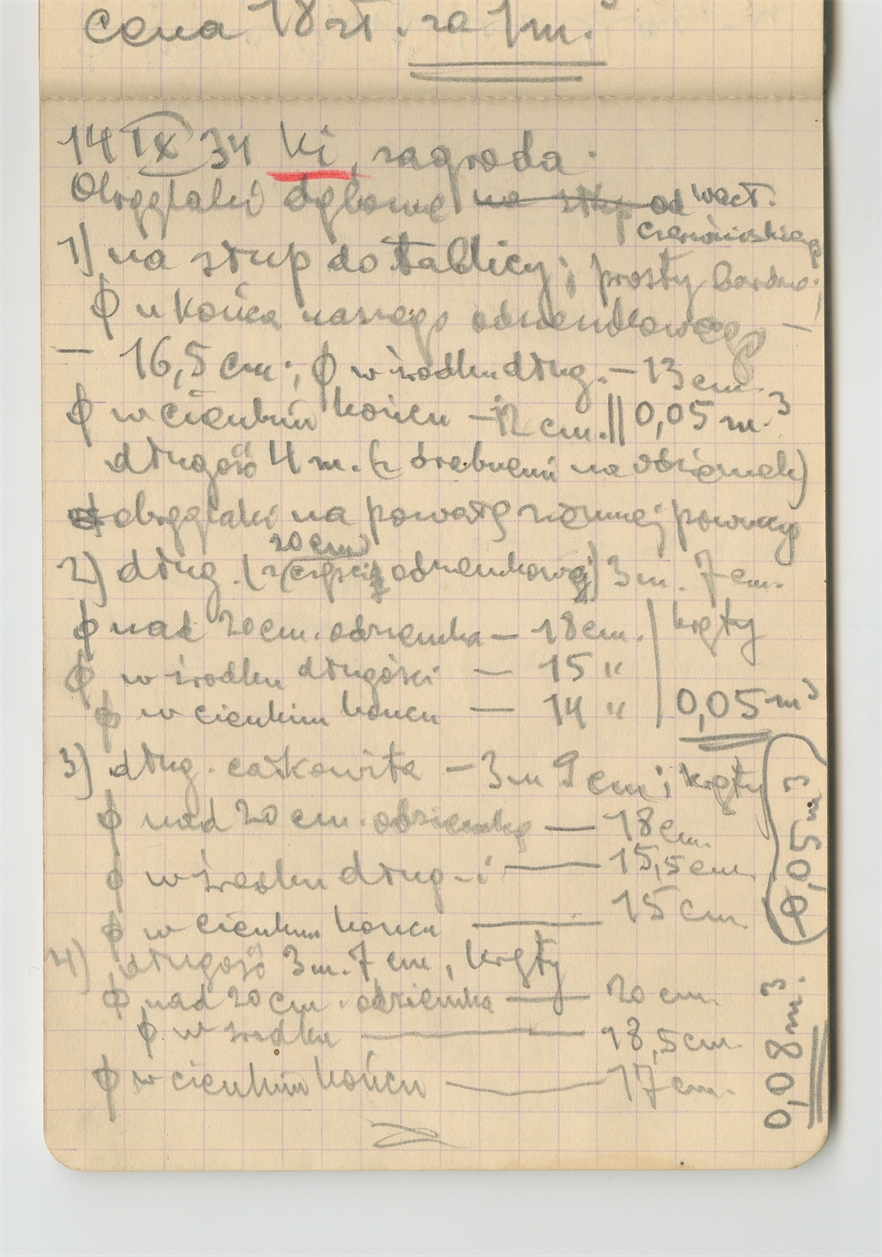 cena 18 zł. za 1 m.³
14 IX 34 Ki, zagroda.
Okrąglaki dębowe na słup od Wacł.
Czerwińskiego
1) na słup do tablicy; prosty bardzo;
ϕ u końca naszego odziemkowego —
— 16,5 cm.; ϕ w środku dług. — 13 cm.
ϕ w cienkim końcu — 12 cm. || 0,05 m.³
długość 4 m. (z
okrąglaki na powałę ziemnej piwnicy
20 cm
2) dług. (z częścią odziemkową) 3 m. 7 cm.
ϕ nad 20 cm. odziemka — 18 cm. | kręty
ϕ w środku długości — 15 "
ϕ w cienkim końcu — 14 " | 0,05 m³
3) dług. całkowita — 3 m 9 cm; kręty
ϕ nad 20 cm. odziemka — 18 cm.
ϕ w środku dług-i — 15,5 cm
ϕ w cienkim końcu — 15 cm
0,05 m³
4) długość 3 m. 7 cm, kręty
ϕ nad 20 cm. odziemka — 20 cm.
ϕ w środku — 18,5 cm.
ϕ w cienkim końcu — 17 cm.
0,08 m.³